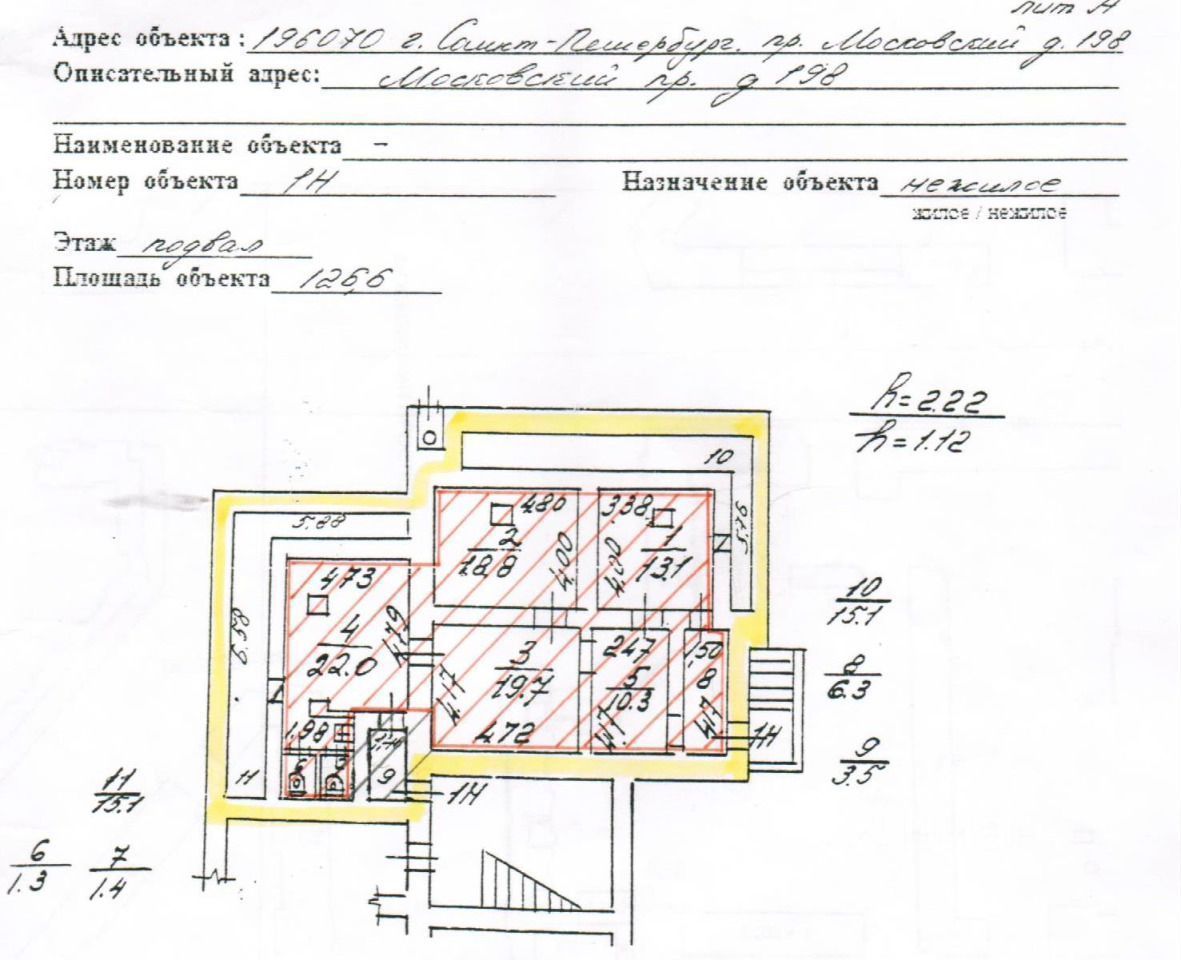 лит А
Адрес объекта: 196070 г. Санкт-Петербург. пр. Московский д. 198
Описательный адрес: Московский пр. д 198
Наименование объекта –
Номер объекта 1Н Назначение объекта нежилое
жилое / нежилое
Этаж подвал
Площадь объекта 126,6
h=2.22
h=1.12
10
5.88
4.80
3.38
5.76
2
18.8
4.00
4.00
1
13.1
4.73
10
15.1
6.58
4
22.0
4.79
3
19.7
2.47
5
10.3
1.50
8
8
6.3
4.17
4.72
4.17
4.17
1Н
1.98
9
9
3.5
11
1Н
11
15.1
6
1.3
7
1.4